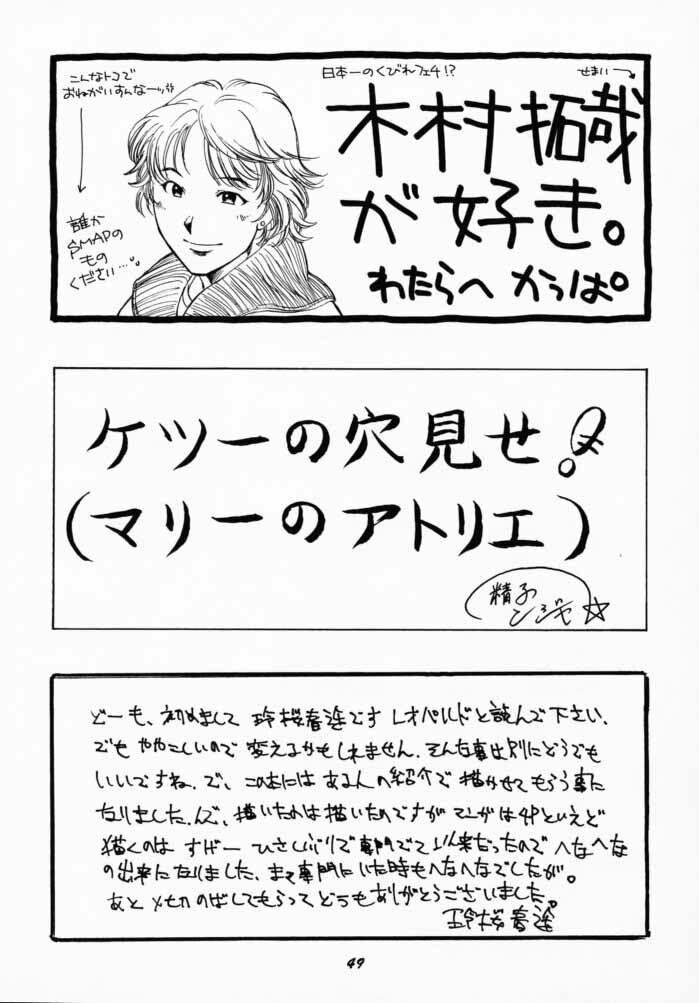 こんなトコで
おねがいすんなーッ!!
誰か
SMAPの
もの
ください…
日本一のくびれフェチ!?
せまい→
木村拓哉
が好き。
わたらへ かっぱ。
ケツーの穴見せ!
(マリーのアトリエ)
精子
ンジャ☆
どーも、初めまして 玲桜春途です レオパルドと読んで下さい、
でも ややこしいので 変えるかもしれません。そんな事は別にどうでも
いいですね。で、この本には ある人の紹介で 描かせてもらう事に
なりました。んで、描いたのは描いたのですが マンガは4Pといえど
描くのは すげー ひさしぶりで専門でて以来だったので へなへな
の出来になりました、まぁ専門にいた時もへなへなでしたが。
あと 〆切のばしてもらって どうもありがとうございました。
玲桜春途
49